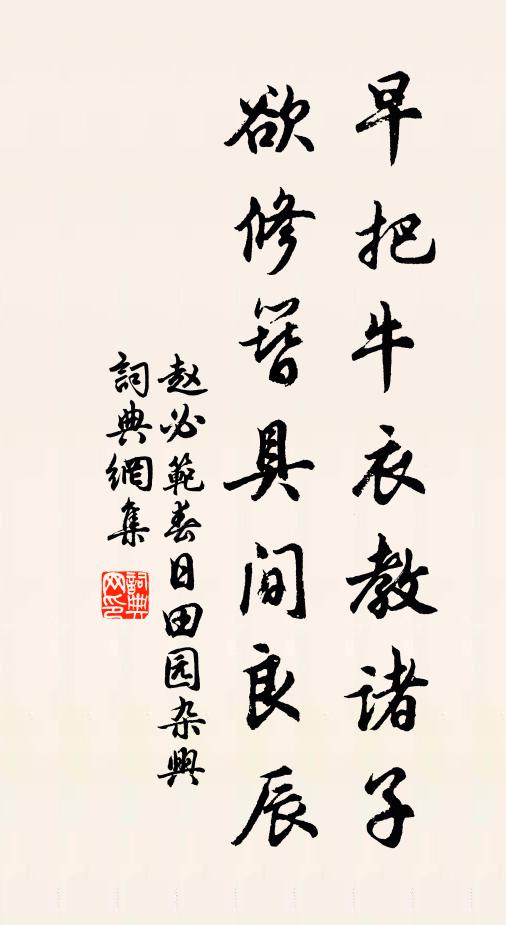 早把牛衣教诸子
欲修簪具间良辰
赵必範春日田园杂興
詞典網集
詞典
网印